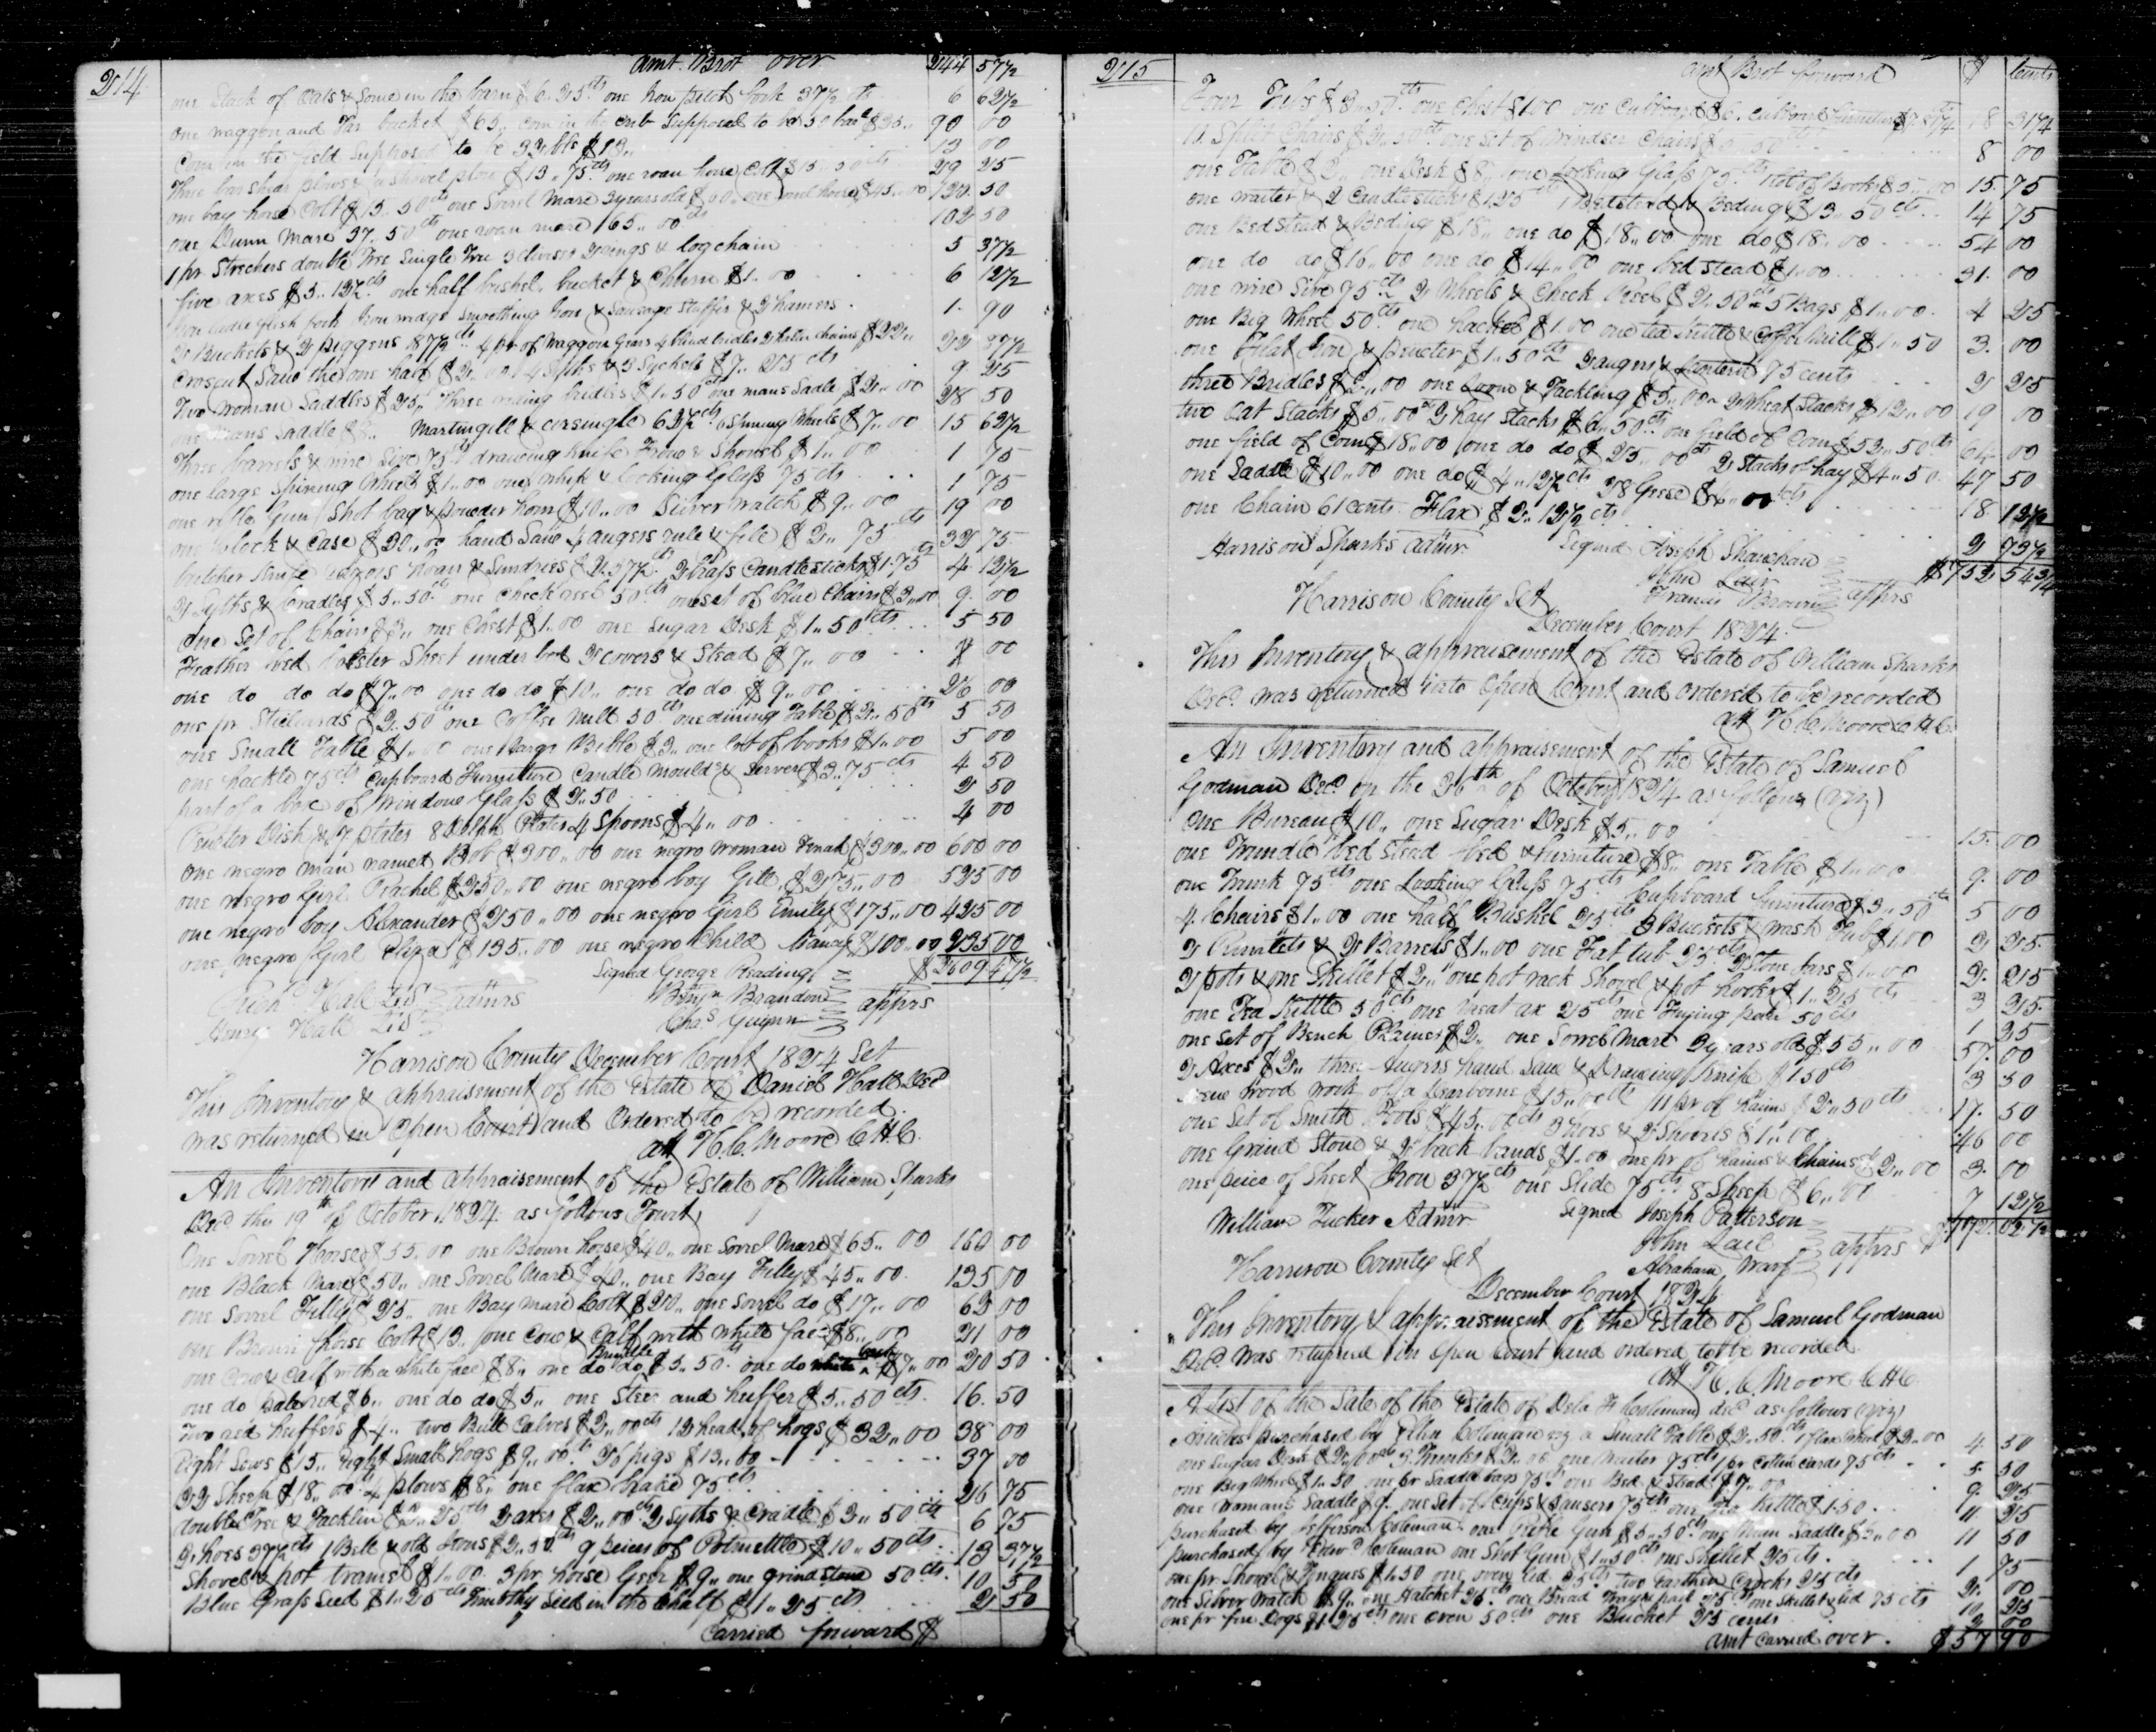 214
Amt. Brot over 244 57 1/2
one Stack of Oats & Some in the barn $6.25 cts one Iron pitch fork 37 1/2 cts 6 62 1/2
one waggon and Tar bucket $65,, Corn in the Crib Supposed to be 50 bar $25,, 90 00
Corn in the field Supposed to be 32 bls $13,, 13 00
Three bar Shear plows & a shovel plow $13,, 75 cts one roan horse Colt $15,, 50 cts 29 25
one bay horse Colt $15.. 50 cts one Sorrel Mare 3 years old $60,, one roan horse $45.. 00 120. 50
one Dunn Mare 37,, 50 cts one roan mare $65,, 00 cts 102 50
1 pr Strechers double Tree Single Tree 3 clevises 2 rings & log chain 5 37 1/2
five axes $5.. 12 1/2 cts one half bushel, bucket & Churn $1.. 00 6 12 1/2
Iron ladle flesh fork Iron wedge Smoothing Iron & Sausage Stuffer & 2 hamers. 1. 90
2 Buckets & 2 piggens 187 1/2 cts 4 pr of Waggon Gears 4 blind bridles 2 chains $22,, 22 37 1/2
Croscut Saw the one half $2,, 00 4 Syths & 3 Syckels $7,, 25 cts 9 25
Two woman Saddles $25,, Three riding bridles $1,, 50 cts one mans Sadle $2,, 00 28 50
one Mans Saddle $8,, Martingill & cirsingle 62 1/2 cts 6 Spining Wheels $7,, 00 15 62 1/2
Three barrels & wire Sive 75 cts drawing knife Froue & Shovel $1,, 00 1 75
one large Spining Wheel $1,, 00 one whip & looking Glass 75 cts 1 75
one rifle Gun Shot bag & powder horn $10,, 00 Silver watch $9,, 00 19 00
one Clock & Case $30,, 00 hand Saw 4 augers rule & file $2,, 75 cts 32 75
butcher knife razors hoan & Sundries $2.37 1/2 cts 2 brass Candlesticks $1.75 cts 4. 12 1/2
2 Syths & Cradles $5.. 50 cts one Check reel 50 cts one set of blue Chairs $3,, 00 9. 00
One Set of Chairs $3,, one Chest $1,, 00 one Sugar Desk $1,, 50 cts 5 50
Feather bed bolster Sheet under bed 2 covers & Stead $7,, 00 7 00
one do do do $7,, 00 one do do $10,, one do do $9,, 00 26 00
one pr Stiliards $2. 50 cts one Coffee Mill 50 cts one dining Table $2,, 50 cts 5 50
one Small Table $1,, 00 one large Bible $3,, one lot of books $1,, 00 5 00
one hackle 75 cts Cupboard Furniture Candle moulds & Server $3,, 75 cts 4 50
part of a box of Window Glass $2,, 50 2 50
Peuter Dish & 7 plates 8 Delph plates 4 Spoons $4,, 00 4 00
One negro man named Bob $300,, 00 one negro woman Finah $300,, 00 600 00
one negro Girl Rachel $250,, 00 one negro boy Gill, $275,, 00 525 00
one negro boy Alexander $250,, 00 one negro Girl Emily $175,, 00 425 00
one negro Girl Eliza $135,, 00 one negro Child Nancy $100,, 00 235 00
Signed George Reading $2609 47 1/2
Hall admrs Benjn Brandon apprs
Henry Hall Chas Guynn
Harrison County December Court 1824 Sct
This Inventory & appraisement of the Estate of Daniel Hall Decd
was returned in open Court and Ordered to be recorded.
att H. C. Moore C H C.
An Inventory and appraisement of the Estate of William Sparks
Decd this 19th of October 1824 as follows Towit,
One Sorrel Horse $55.. 00 one Brown horse $40,, one Sorrel Mare $65,, 00 160 00
one Black Mare $50,, one Sorrel Mare $40,, one Bay Filly $45,, 00. 135 00
one Sorrel Filly $25,, one Bay mare Colt $20,, one Sorrel do $17,, 00 62 00
one Brown horse Colt $13,, one Cow & Calf with white face $8,, 00 21 00
one Cow & Calf with a white face $8,, one Brindle do do $5,, 50 cts one do $7,, 00 20 50
one do $6,, one do do $5,, one Steer and heffer $5,, 50 cts. 16. 50
Two red heffers $4,, two Bull Calves $2,, 00 cts 12 head of hogs $32,, 00 38 00
Eight Sows $15,, Eight Small hogs $9,, 00 cts 26 pigs $13,, 00 37 00
22 Sheep $18,, 00 cts 4 plows $8,, one flax brake 75 cts 26 75
double Tree & Tacklin $2,, 25 cts 2 axes $2,, 00 cts 2 Syths & Cradle $2,, 50 cts 6 75
2 hoes 37 1/2 cts 1 Bell & old Irons $2,, 50 cts 9 peices of Potmettle $10,, 50 cts 13 37 1/2
Shovel & pot tramel $1,, 00. 3 pr. horse Gear $9,, one grind Stone 50 cts. 10 50
Blue Grass Seed $1,, 25 cts Timothy Seed in the Chaff $1,, 25 cts 2 50
Carried forward $
215
amt Brot forward $ Cents
Four Tubs $2,, 50 cts one Chest $1 00 one Cubboard $6. Cubboard furniture 8 31 1/4
10 Split Chairs $2,, 50 cts one Set of Windser Chairs $5 50 cts 8 00
one Table $2,, one Desk $8,, one Looking Glass 75 cts 1 lot of Books $5,, 00 15. 75
one waiter & 2 Candlesticks $1,25 cts 1 Bedstead & Beding $13,, 50 cts 14 75
one Bedstead & Beding $18,, one do $18,, 00 one do $18,, 00 54 00
one do do $16,, 00 one do $14,, 00 one bed stead $1,, 00 31. 00
one wire Sive 75 cts 2 Wheels & Check Reel $2,, 50 cts 5 Bags $1,, 00. 4 25
one Big Wheel 50 cts one hackel $1.00 one tea kettle & Coffee Mill $1,, 50 3. 00
one Flat Iron & Peuter $1,, 50 cts 2 augers & Lantern 75 cents 2 25
three Bridles $2,, 00 one Loom & Tackling $5,, 00 2 Wheat Stacks $12,, 00 19 00
two Oat Stacks $5,, 00 cts 2 hay Stacks $6,, 50 cts one field of Corn $52,, 50 cts 64 00
one field of Corn $18,, 00 one do do $25,, 00 cts 2 Stacks of hay $4,, 50. 47 50
one Saddle $10,, 00 one do $4,, 12 1/2 cts 28 Geese $4,, 00 cts 18 12 1/2
one Chain 61 cents Flax $2,, 12 1/2 cts 2 73 1/2
Harrison Sparks admr. Signed Joseph Shawhan $752 54 3/4
John Lair apprs
Francis Brown
Harrison County Sct
December Court 1824.
This Inventory & appraisement of the Estate of William Sparks
Decd was returned into Open Court and ordered to be recorded
att H. C. Moore C H C.
An Inventory and appraisement of the Estate of Samuel
Godman Decd on the 26th of October 1824 as follows (viz)
One Bureau $10,, one Sugar Desk $5,, 00 15. 00
one Trundle bed stead bed & furniture $8,, one Table $1,, 00 9. 00
one Trunk 75 cts one Looking Glass 75 cts Cupboard furniture $3,, 50 cts 5 00
4 Chairs $1,, 00 one half Bushel 25 cts 3 Buckets & wash Tub $1,00 2 25.
2 Rundlets & 2 Barrels $1,, 00 one Fat tub 25 cts 2 Stone Jars $1,, 00 2. 25
2 pots & one Skillet $2,, one pot rack Shovel & pot hooks $1,, 25 cts 3 25.
one Tea Kettle 50 cts one meat ax 25 cts one Frying pan 50 cts 1 25
one set of Bench Planes $2,, one Sorrel Mare 3 years old $55,, 00 57. 00
2 Axes $2,, three Augers hand Saw & Drawing knife $1 50 cts 3 50
Some wood work of a Dearborne $15,, 00 cts 11 pr of haims $2,, 50 cts 17. 50
one Set of Smith Tools $45,, 00 cts 3 hoes & 2 Shovels $1,, 00 46 00
one Grind Stone & 2 back bands $1.00 one pr of haims & Chains $2,, 00 3. 00
one peice of Sheet Iron 37 1/2 cts one Slide 75 cts 8 Sheep $6,, 00 7 12 1/2
William Tucker Admr Signed Joseph Patterson $172. 02 1/2
John Lail apprs
Abraham
Harrison County Sct
December Court 1824
This Inventory & appraisement of the Estate of Samuel Godman
Decd was returned in open Court and ordered to be recorded
att H. C. Moore C H C.
A List of the Sale of the Estate of Coleman decd as follows (viz)
Articles purchased by Ellin Coleman viz a Small Table $2,, 50 cts 1 flax wheel $2,, 00 4 50
one Sugar Desk $2,, 00 cts 3 Trunks $2,, 00 one Waiter 75 cts 1 pr Cotton Cards 75 cts 5. 50
one Big Wheel $1,, 50 one pr Saddle bags 75 cts one Bed & Stead $7,, 00 9. 25
one Womans Saddle $9. one Set of Cups & Sausers 75 cts one Tea Kettle $1.50. 11. 25
purchased by Jefferson Coleman one Rifle Gun $5,, 50 cts one Man Saddle $6,, 00 11 50
purchased by Edwd Coleman one Shot Gun $1,, 50 cts one Skillet 25 cts. 1 75
one pr Shovel & Tongues $1.50 one oven lid 25 cts two Earthen Crocks 25 cts 2. 00
one Silver Watch $9,, one Hatchet 25 cts one Bread Tray & pail 25 cts one Skillet & lid 75 cts 10 25
one pr fire Dogs $1 25 cts one oven 50 cts one Bucket 25 cents 2 00
amt carried over. $57 90